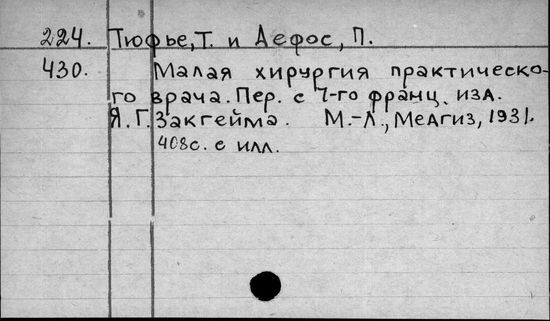 224. Тюфье, Т. и Дефос, П.
430. Малая хирургия практическо-
го врача. Пер. с 7-го франц. изд.
Я. Г. Закгейма. М.-Л., Медгиз, 1931.
408с. с илл.